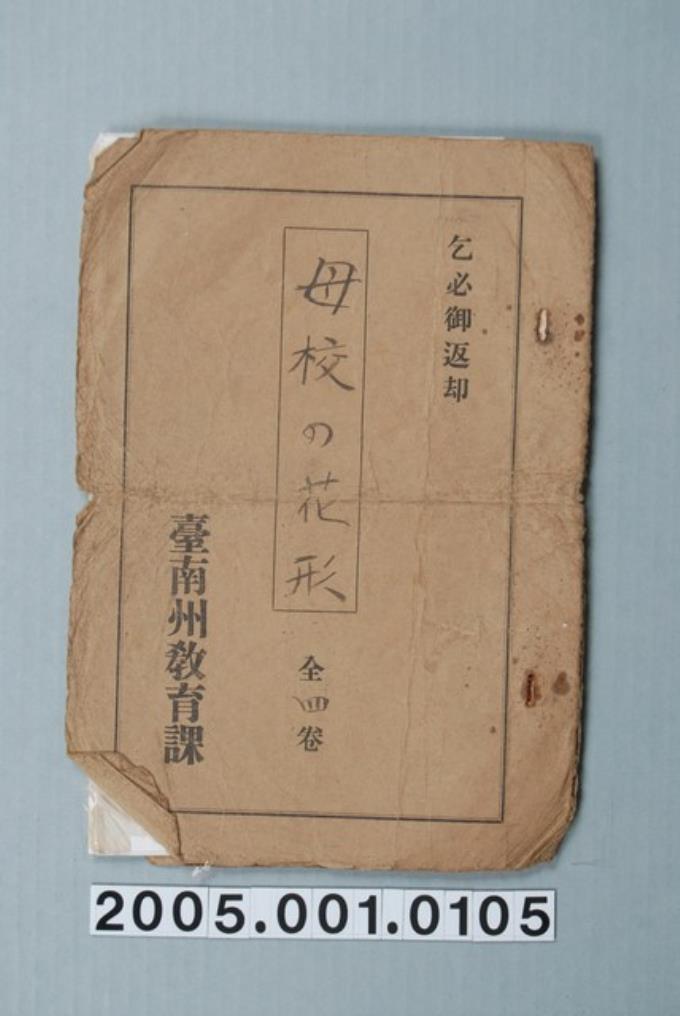 乞必御返却
母校の花形
全四卷
臺南州教育課
2005.001.0105